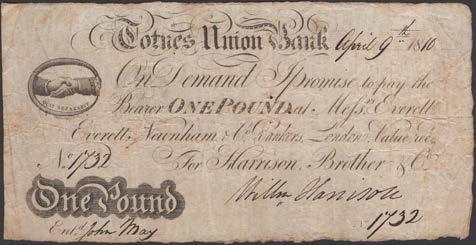 Totnes Union Bank April 9th 1810
On Demand I promise to pay the
Bearer ONE POUND at Messrs Everett
Everett, Newnham & Co Bankers, London. Value rec
No 1732 For Harrison, Brother & Co
One Pound Willm Harrison
Entd John May 1732